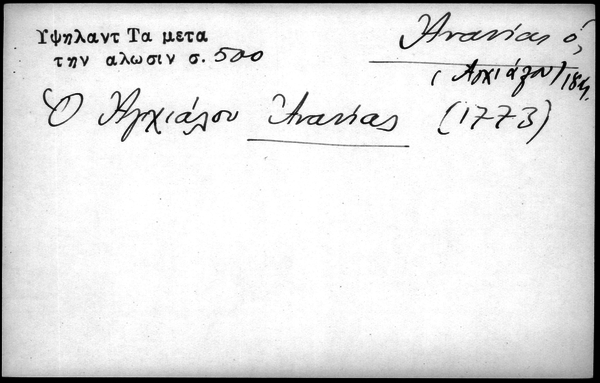 Υψηλαντ Τα μετα
την αλωσιν σ. 500
Ἀνανίας ὁ,
(Ἀγχιάλου) 18ος
Ὁ Ἀγχιάλου Ἀνανίας (1773)